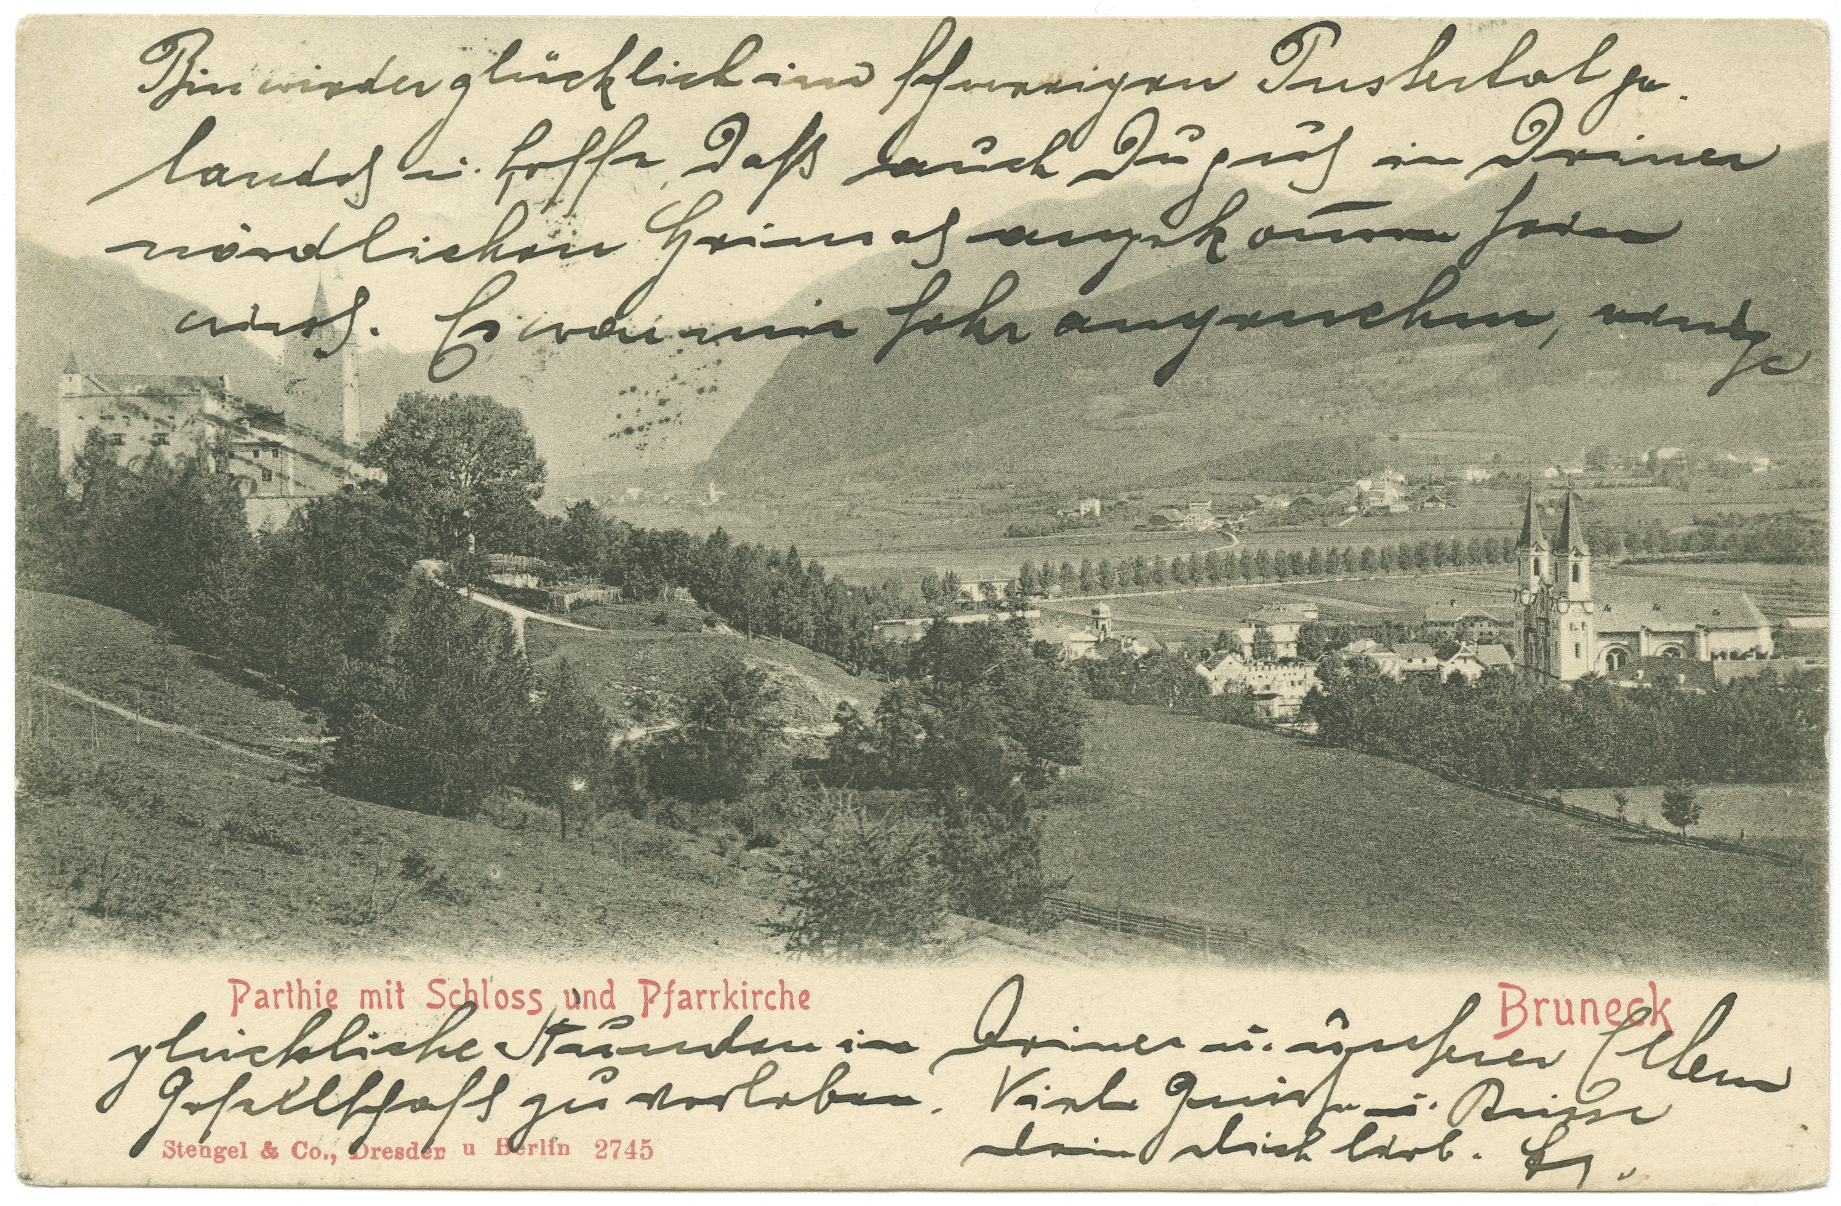 Bin wieder glücklich im schneeigen Pustertal ge-
landet u. hoffe, daß auch Du gut in Deiner
nördlichen Heimat angekom̄en sein
wirst. Es war mir sehr angenehm, einige
Parthie mit Schloss und Pfarrkirche
Bruneck
glückliche Stunden in Deiner u. unserer Eltern
Gesellschaft zu verleben. Viele Grüße u. Küsse
Dein Dich lieb.
Stengel & Co., Dresden u Berlin 2745